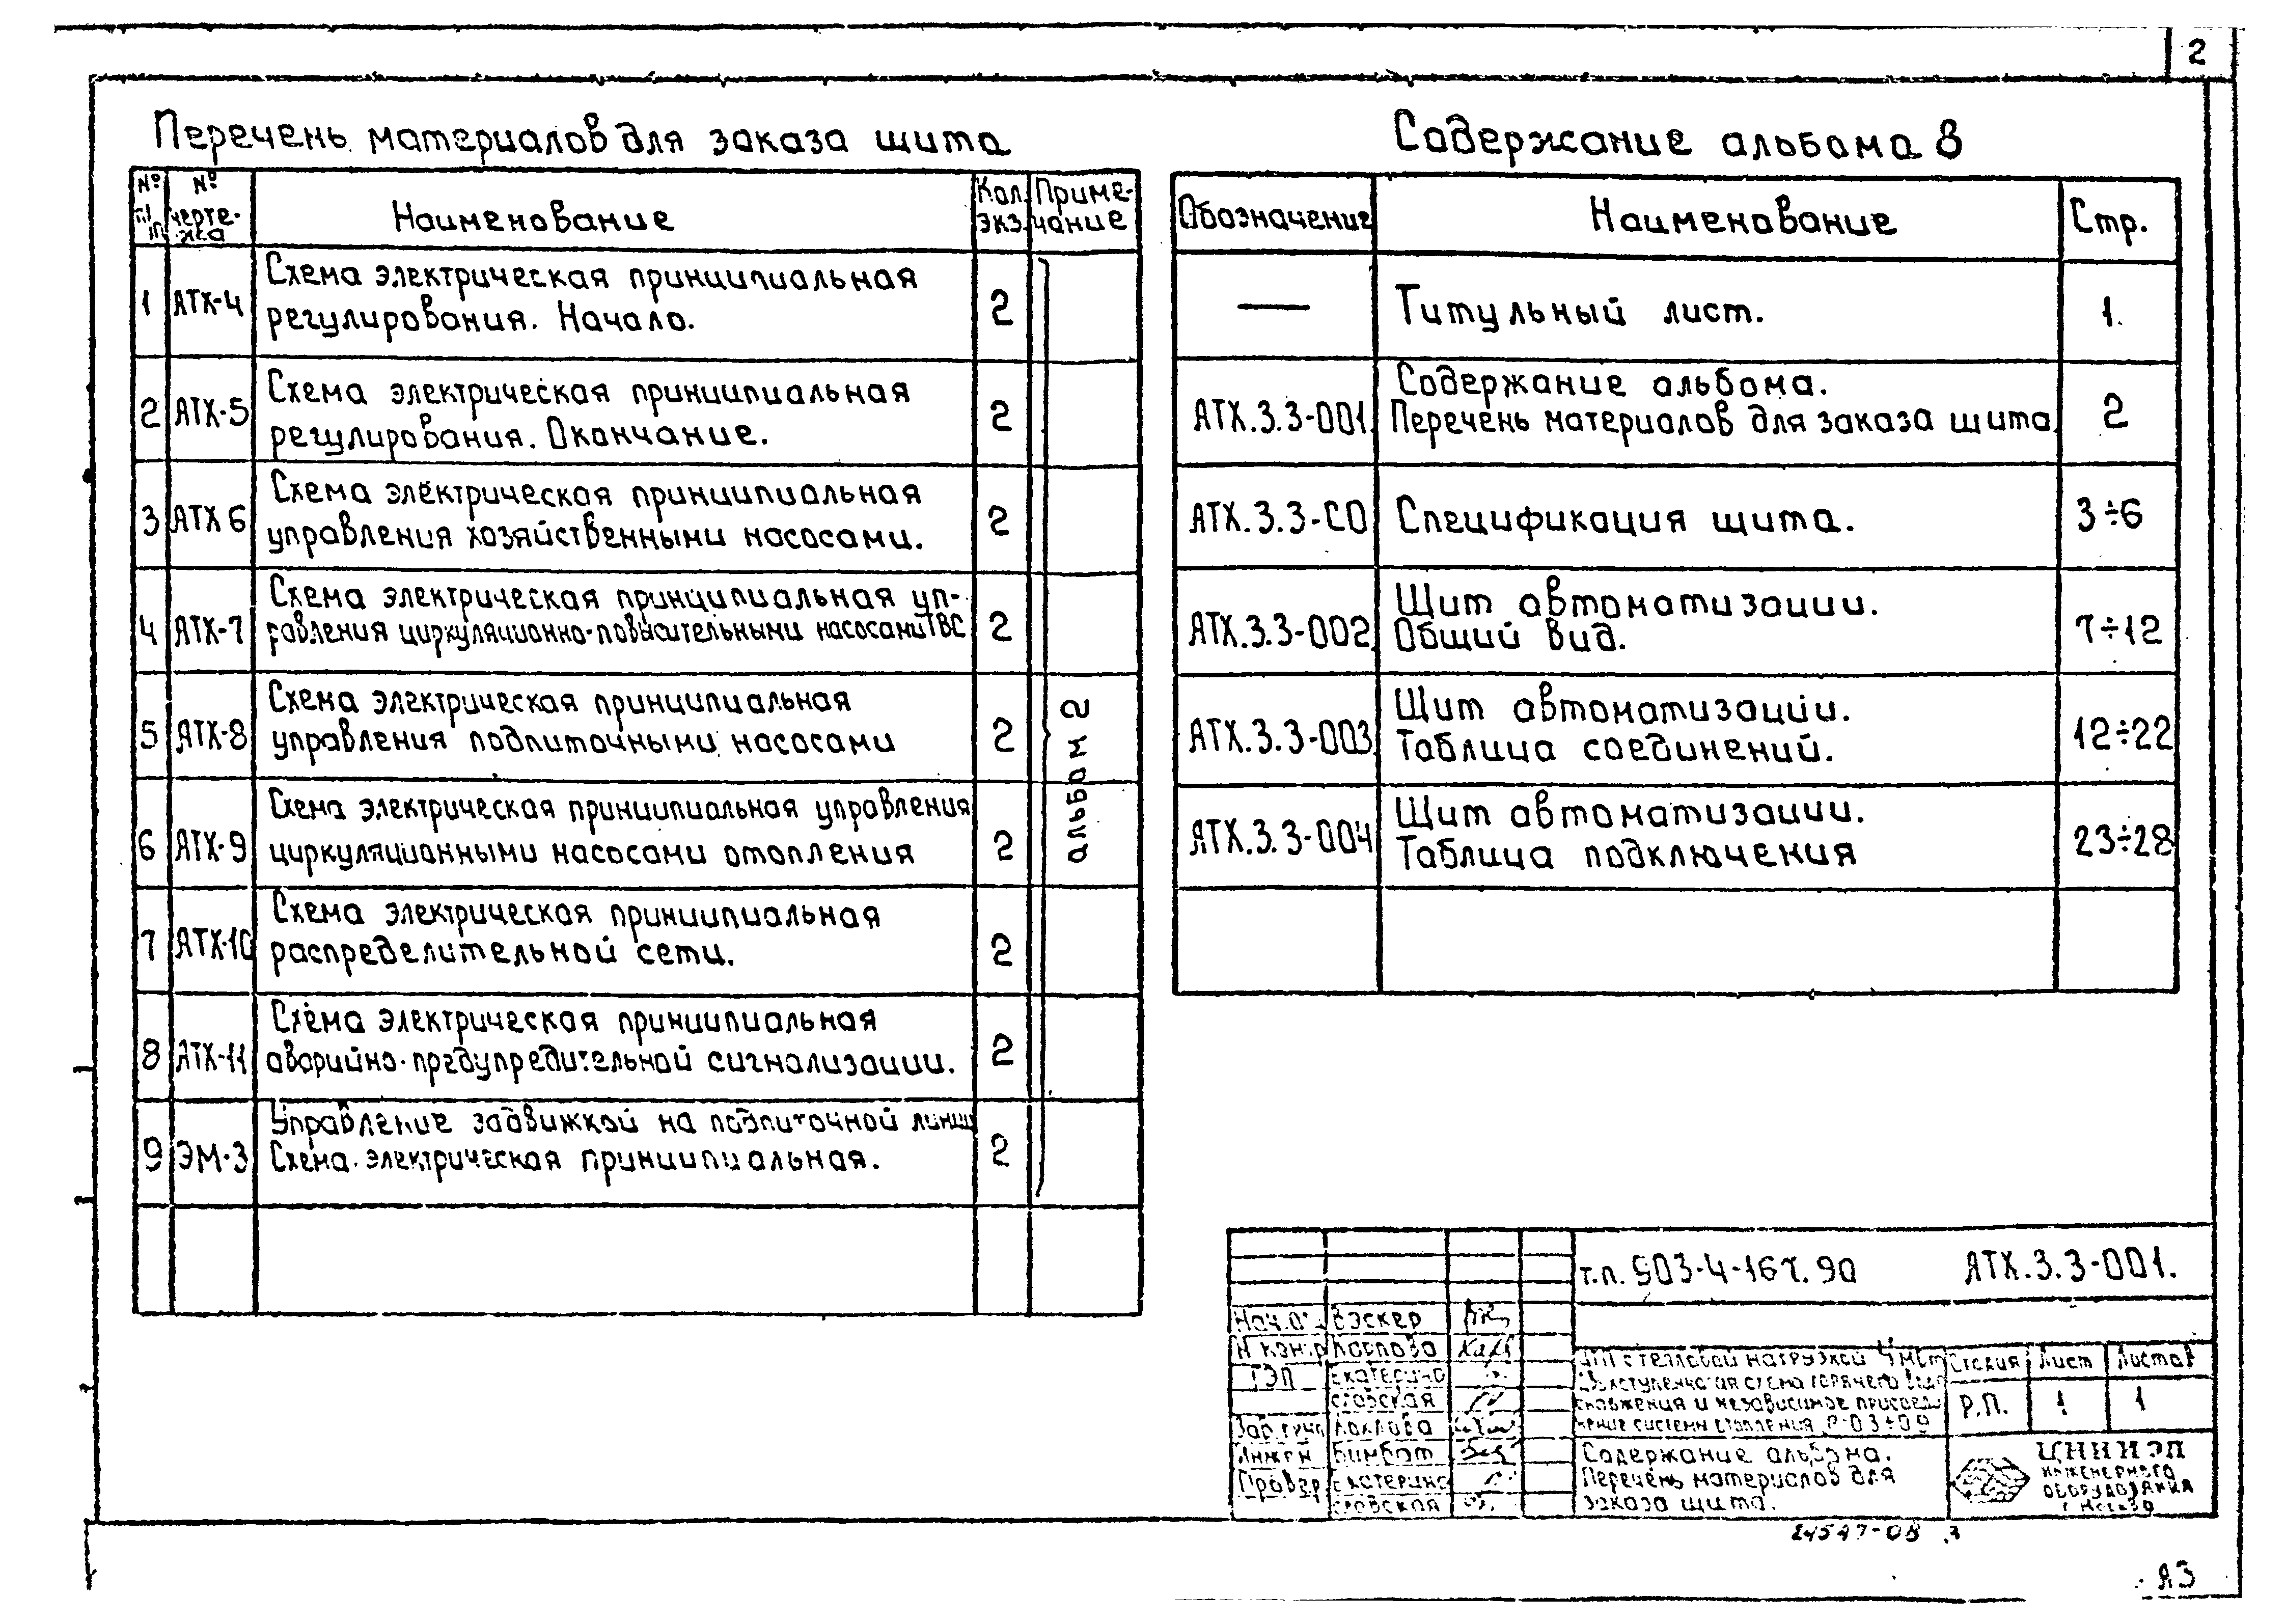 2
Перечень материалов для заказа щита
№ п/п
№ чертежа
Наименование
Кол. экз.
Приме-
чание
1 АТХ-4 Схема электрическая принципиальная
регулирования. Начало. 2
2 АТХ-5 Схема электрическая принципиальная
регулирования. Окончание. 2
3 АТХ 6 Схема электрическая принципиальная
управления хозяйственными насосами. 2
4 АТХ-7 Схема электрическая принципиальная уп-
равления циркуляционно-повысительными насосами ГВС 2
5 АТХ-8 Схема электрическая принципиальная
управления подпиточными насосами 2
6 АТХ-9 Схема электрическая принципиальная управления
циркуляционными насосами отопления 2
7 АТХ-10 Схема электрическая принципиальная
распределительной сети. 2
8 АТХ-11 Схема электрическая принципиальная
аварийно-предупредительной сигнализации. 2
9 ЭМ-3 Управление задвижкой на подпиточной линии
Схема электрическая принципиальная. 2
альбом 2
Содержание альбома 8
Обозначение Наименование Стр.
— Титульный лист. 1.
Содержание альбома.
АТХ.3.3-001 Перечень материалов для заказа щита 2
АТХ.3.3-СО Спецификация щита. 3÷6
Щит автоматизации.
АТХ.3.3-002 Общий вид. 7÷12
Щит автоматизации.
АТХ.3.3-003 Таблица соединений. 12÷22
Щит автоматизации.
АТХ.3.3-004 Таблица подключения 23÷28
т.п. 903-4-167.90 АТХ.3.3-001.
Н контр Карпова
ГЭП Екатерино
славская
Инжен Бимбат
Провер Екатерино
славская
ЦТП с тепловой нагрузкой 4 мвт
Двухступенчатая схема горячего водо
снабжения и независимое присоеди
нение системы отопления
Стадия Лист Листов
Р.П. 1 1
Содержание альбома.
Перечень материалов для
заказа щита.
ЦНИИЭП
инженерного
оборудования
г. Москва
24547-08 3
А3